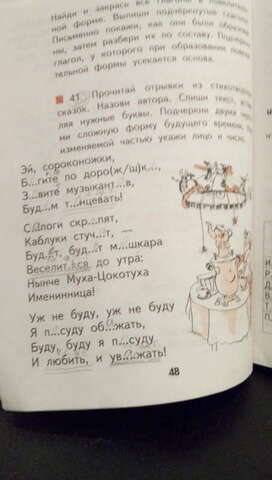 Найди и закрась все глаголы в повелитель-
ной форме. Выпиши подчёркнутые глаголы.
Письменно покажи, как они были образова-
ны, затем разбери их по составу. Подчеркни
глагол, у которого при образовании повели-
тельной формы усекается основа.
41. Прочитай отрывки из стихотворных
сказок. Назови автора. Спиши текст, встав-
ляя нужные буквы. Подчеркни двумя черта-
ми сложную форму будущего времени. Над
изменяемой частью укажи лицо и число.
Эй, сороконожки,
Б...гите по доро(ж/ш)к...,
З...вите музыкант...в,
Буд...м т...нцевать!
С...поги скр...пят,
Каблуки стуч...т, —
Буд...т, буд...т м...шкара
Веселит...ся до утра:
Нынче Муха-Цокотуха
Именинница!
Уж не буду, уж не буду
Я п...суду об...жать,
Буду, буду я п...суду
И любить, и ув...жать!
48